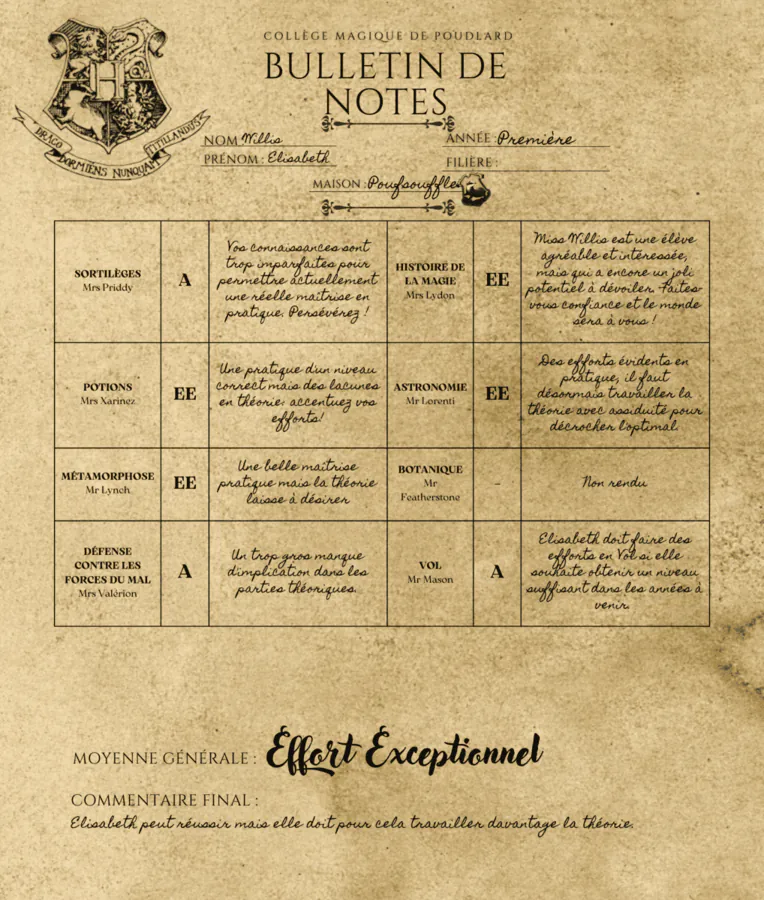 COLLÈGE MAGIQUE DE POUDLARD
BULLETIN DE
NOTES
DRACO DORMIENS NUNQUAM TITILLANDUS
H
NOM Willis
PRÉNOM : Elisabeth
ANNÉE : Première
FILIÈRE :
MAISON : Poufsouffle
SORTILÈGES
Mrs Priddy
A
Vos connaissances sont
trop imparfaites pour
permettre actuellement
une réelle maîtrise en
pratique. Persévérez !
HISTOIRE DE
LA MAGIE
Mrs Lydon
EE
Miss Willis est une élève
agréable et intéressée,
mais qui a encore un joli
potentiel à dévoiler. Faites-
vous confiance et le monde
sera à vous !
POTIONS
Mrs Xarinez
EE
Une pratique d'un niveau
correct mais des lacunes
en théorie: accentuez vos
efforts!
ASTRONOMIE
Mr Lorenti
EE
Des efforts évidents en
pratique, il faut
désormais travailler la
théorie avec assiduité pour
décrocher l'optimal.
MÉTAMORPHOSE
Mr Lynch
EE
Une belle maîtrise
pratique mais la théorie
laisse à désirer
BOTANIQUE
Mr
Featherstone
-
Non rendu
DÉFENSE
CONTRE LES
FORCES DU MAL
Mrs Valérion
A
Un trop gros manque
d'implication dans les
parties théoriques.
VOL
Mr Mason
A
Elisabeth doit faire des
efforts en Vol si elle
souhaite obtenir un niveau
suffisant dans les années à
venir.
MOYENNE GÉNÉRALE : Effort Exceptionnel
COMMENTAIRE FINAL :
Elisabeth peut réussir mais elle doit pour cela travailler davantage la théorie.